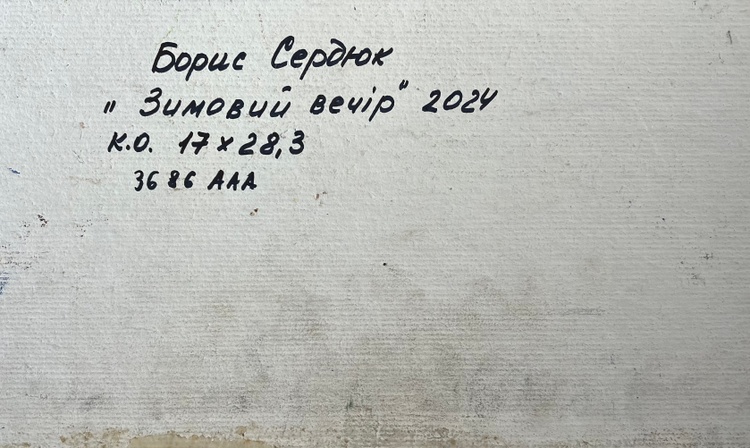 Борис Сердюк
"Зимовий вечір" 2024
К.О. 17 х 28,3
3686 ААА